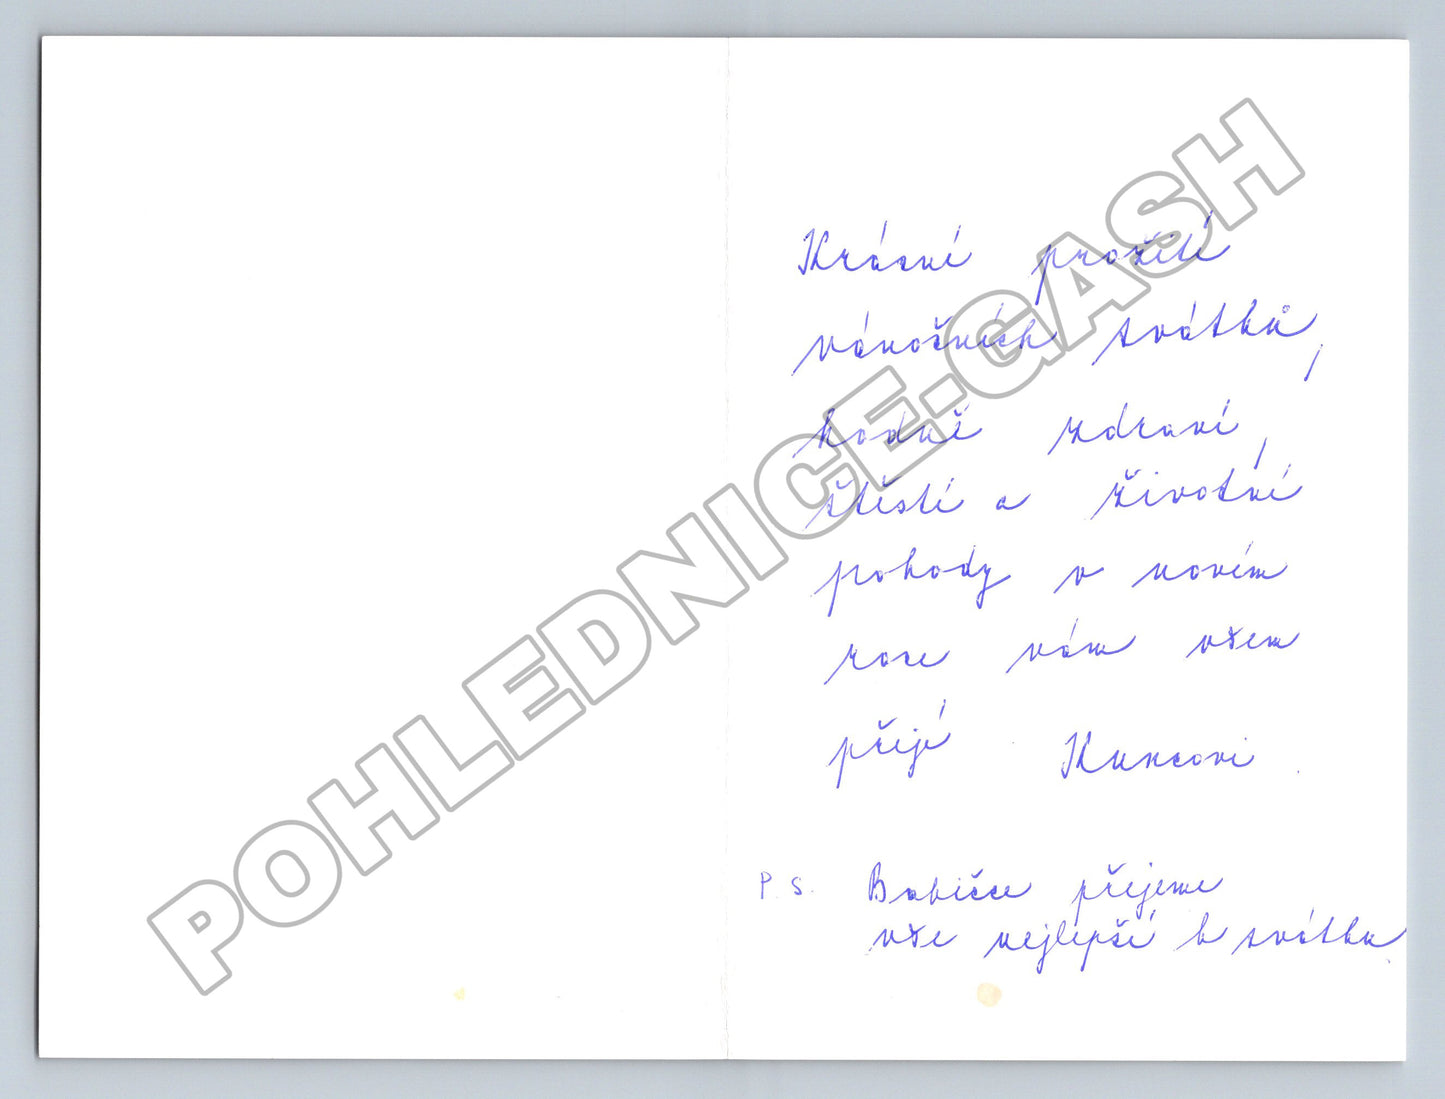 Krásné prožití
vánočních svátků,
hodně zdraví,
štěstí a životní
pohody v novém
roce vám všem
přejí Kuncovi
P.S. Babičce přejeme
vše nejlepší k svátku.
POHLEDNICE.GASH